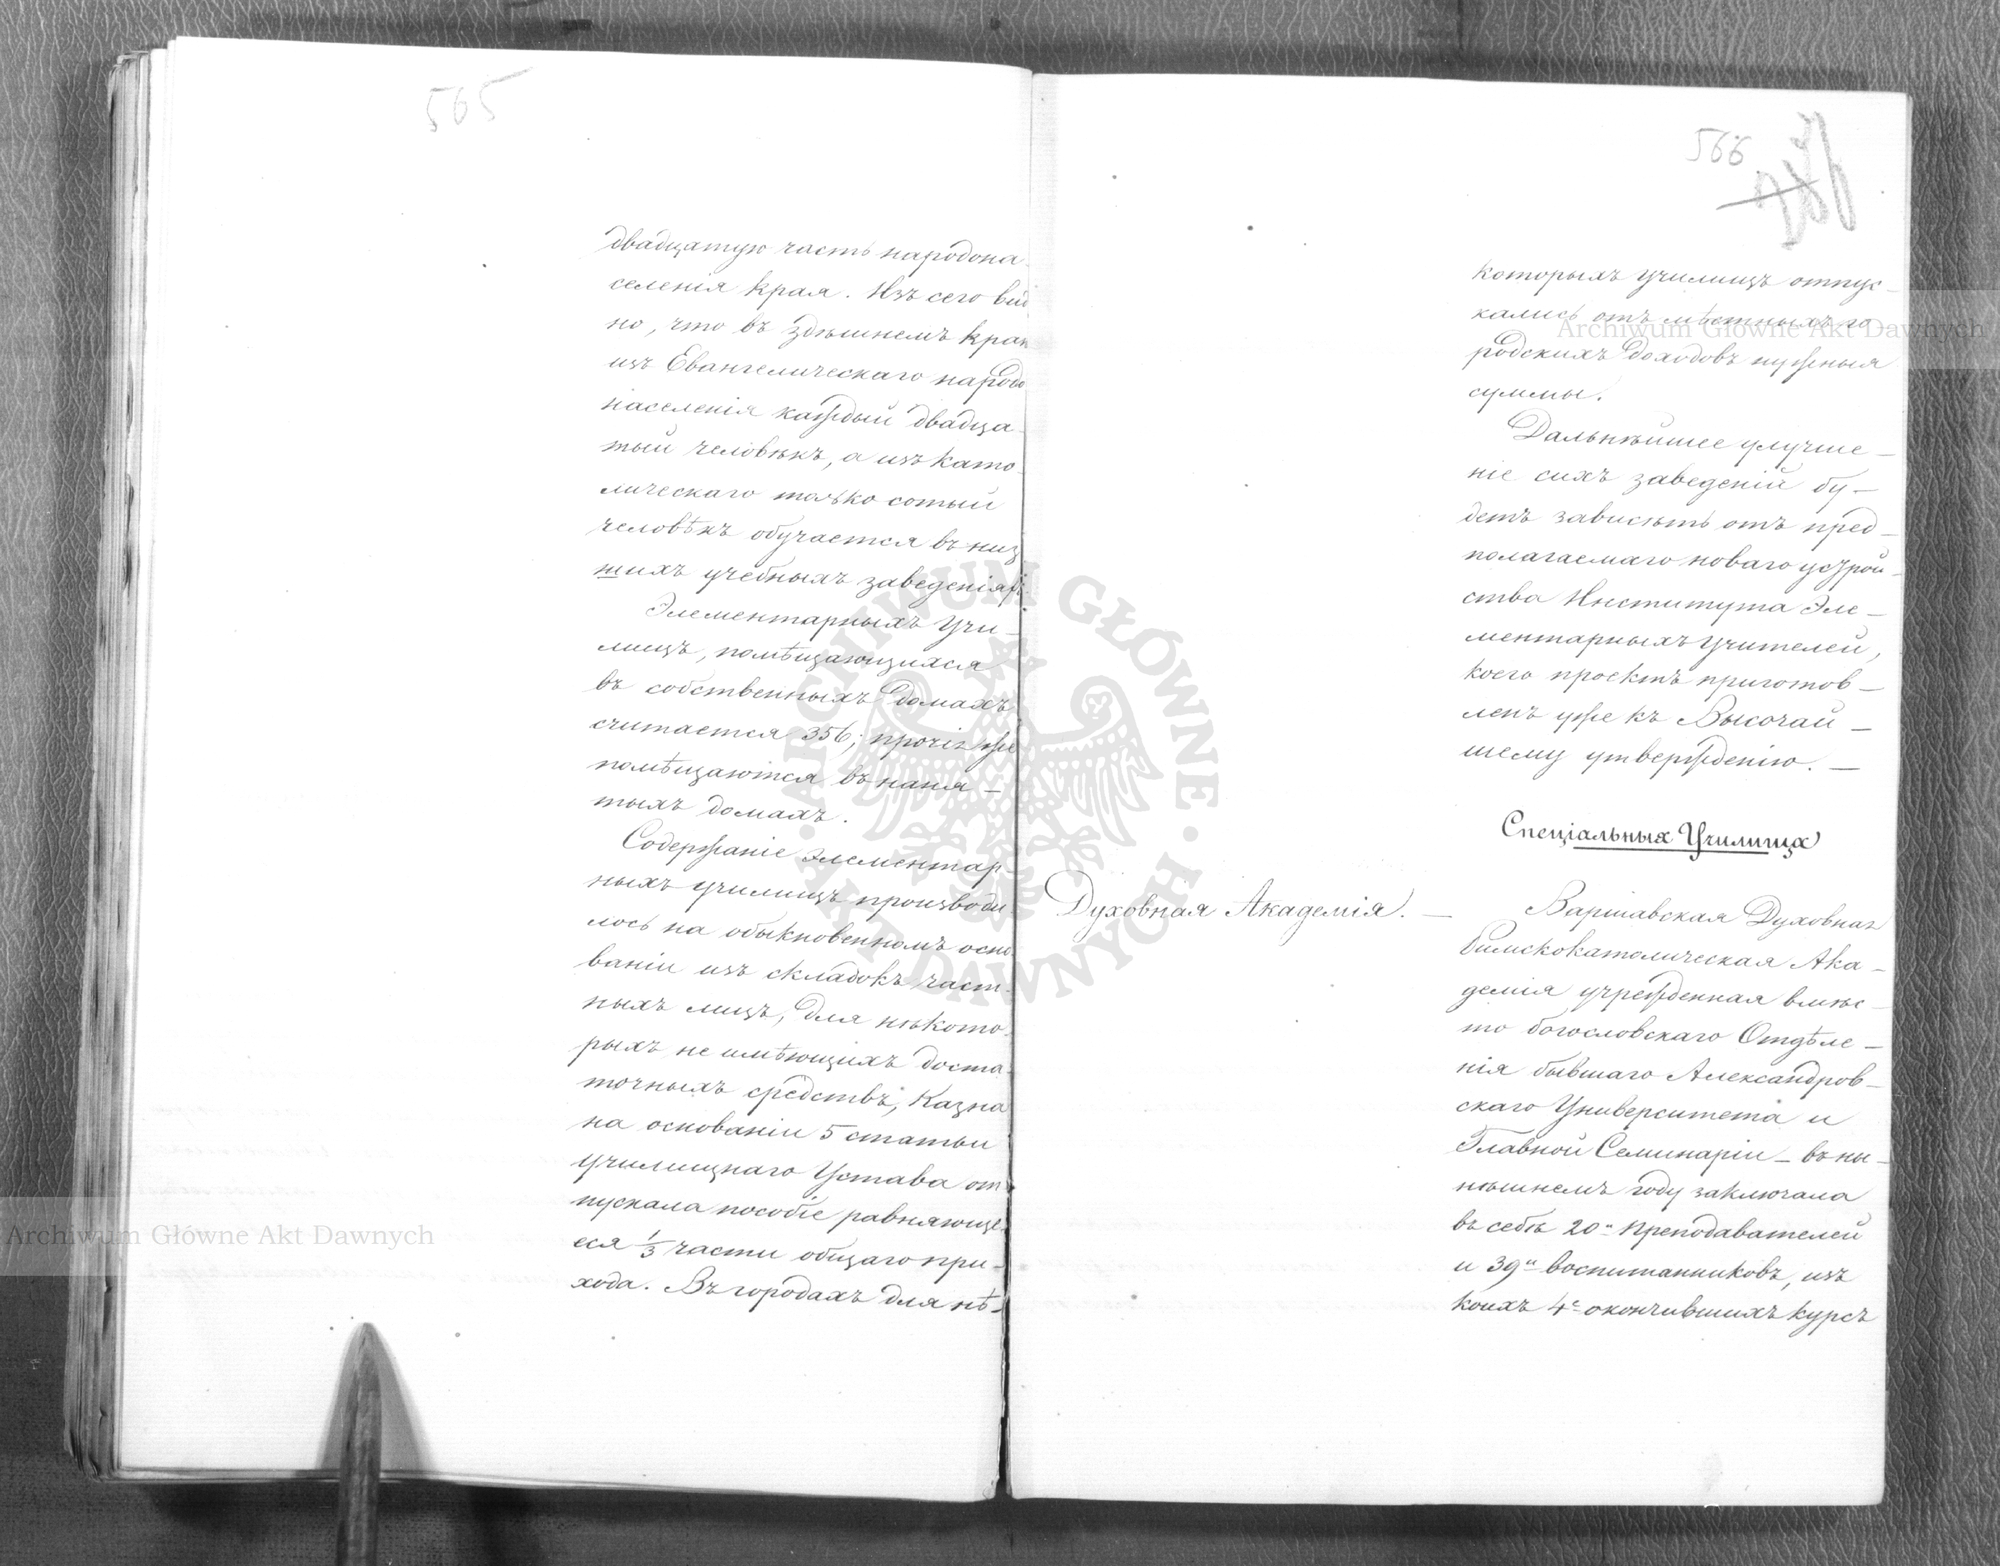 565
двадцатую часть народона-
селенія края. Изъ сего вид
но, что въ здѣшнемъ краѣ
изъ Евангелическаго народо
населенія каждый двадца-
тый человѣкъ, а изъ като-
лическаго только сотый
человѣкъ обучается въ низ
шихъ учебныхъ заведеніяхъ.
Элементарныхъ Учи-
лищъ, помѣщающихся
въ собственныхъ домахъ
считается 356; прочія же
помѣщаются въ наня-
тыхъ домахъ.
Содержаніе элементар
ныхъ училищъ производи
лось на обыкновенномъ осно
ваніи изъ складокъ част-
ныхъ лицъ, для нѣкото-
рыхъ не имѣющихъ доста-
точныхъ средствъ, Казна
на основаніи 5 статьи
Училищнаго Устава от
пускала пособіе равняюще
еся 1/3 части общаго при-
хода. Въ городахъ для нѣ-
566
286
которыхъ училищъ отпус-
кались отъ мѣстныхъ го
родскихъ доходовъ нужныя
суммы.
Дальнѣйшее улучше-
ніе сихъ заведеній бу-
детъ зависѣть отъ пред-
полагаемаго новаго устрой-
ства Института Эле-
ментарныхъ Учителей,
коего проектъ приготов-
ленъ уже къ Высочай-
шему утвержденію. —
Спеціальныхъ Училищъ
Духовная Академія. —
Варшавская Духовная
Римскокатолическая Ака-
демія учрежденная вмѣс-
то богословскаго Отдѣле-
нія бывшаго Александров-
скаго Университета и
Главной Семинаріи - въ ны-
нѣшнемъ году заключала
въ себѣ 20-ъ Преподавателей
и 39-ъ воспитанниковъ, изъ
коихъ 4-е окончившихъ курсъ
Archiwum Główne Akt Dawnych
Archiwum Główne Akt Dawnych
ARCHIWUM GŁÓWNE AKT DAWNYCH